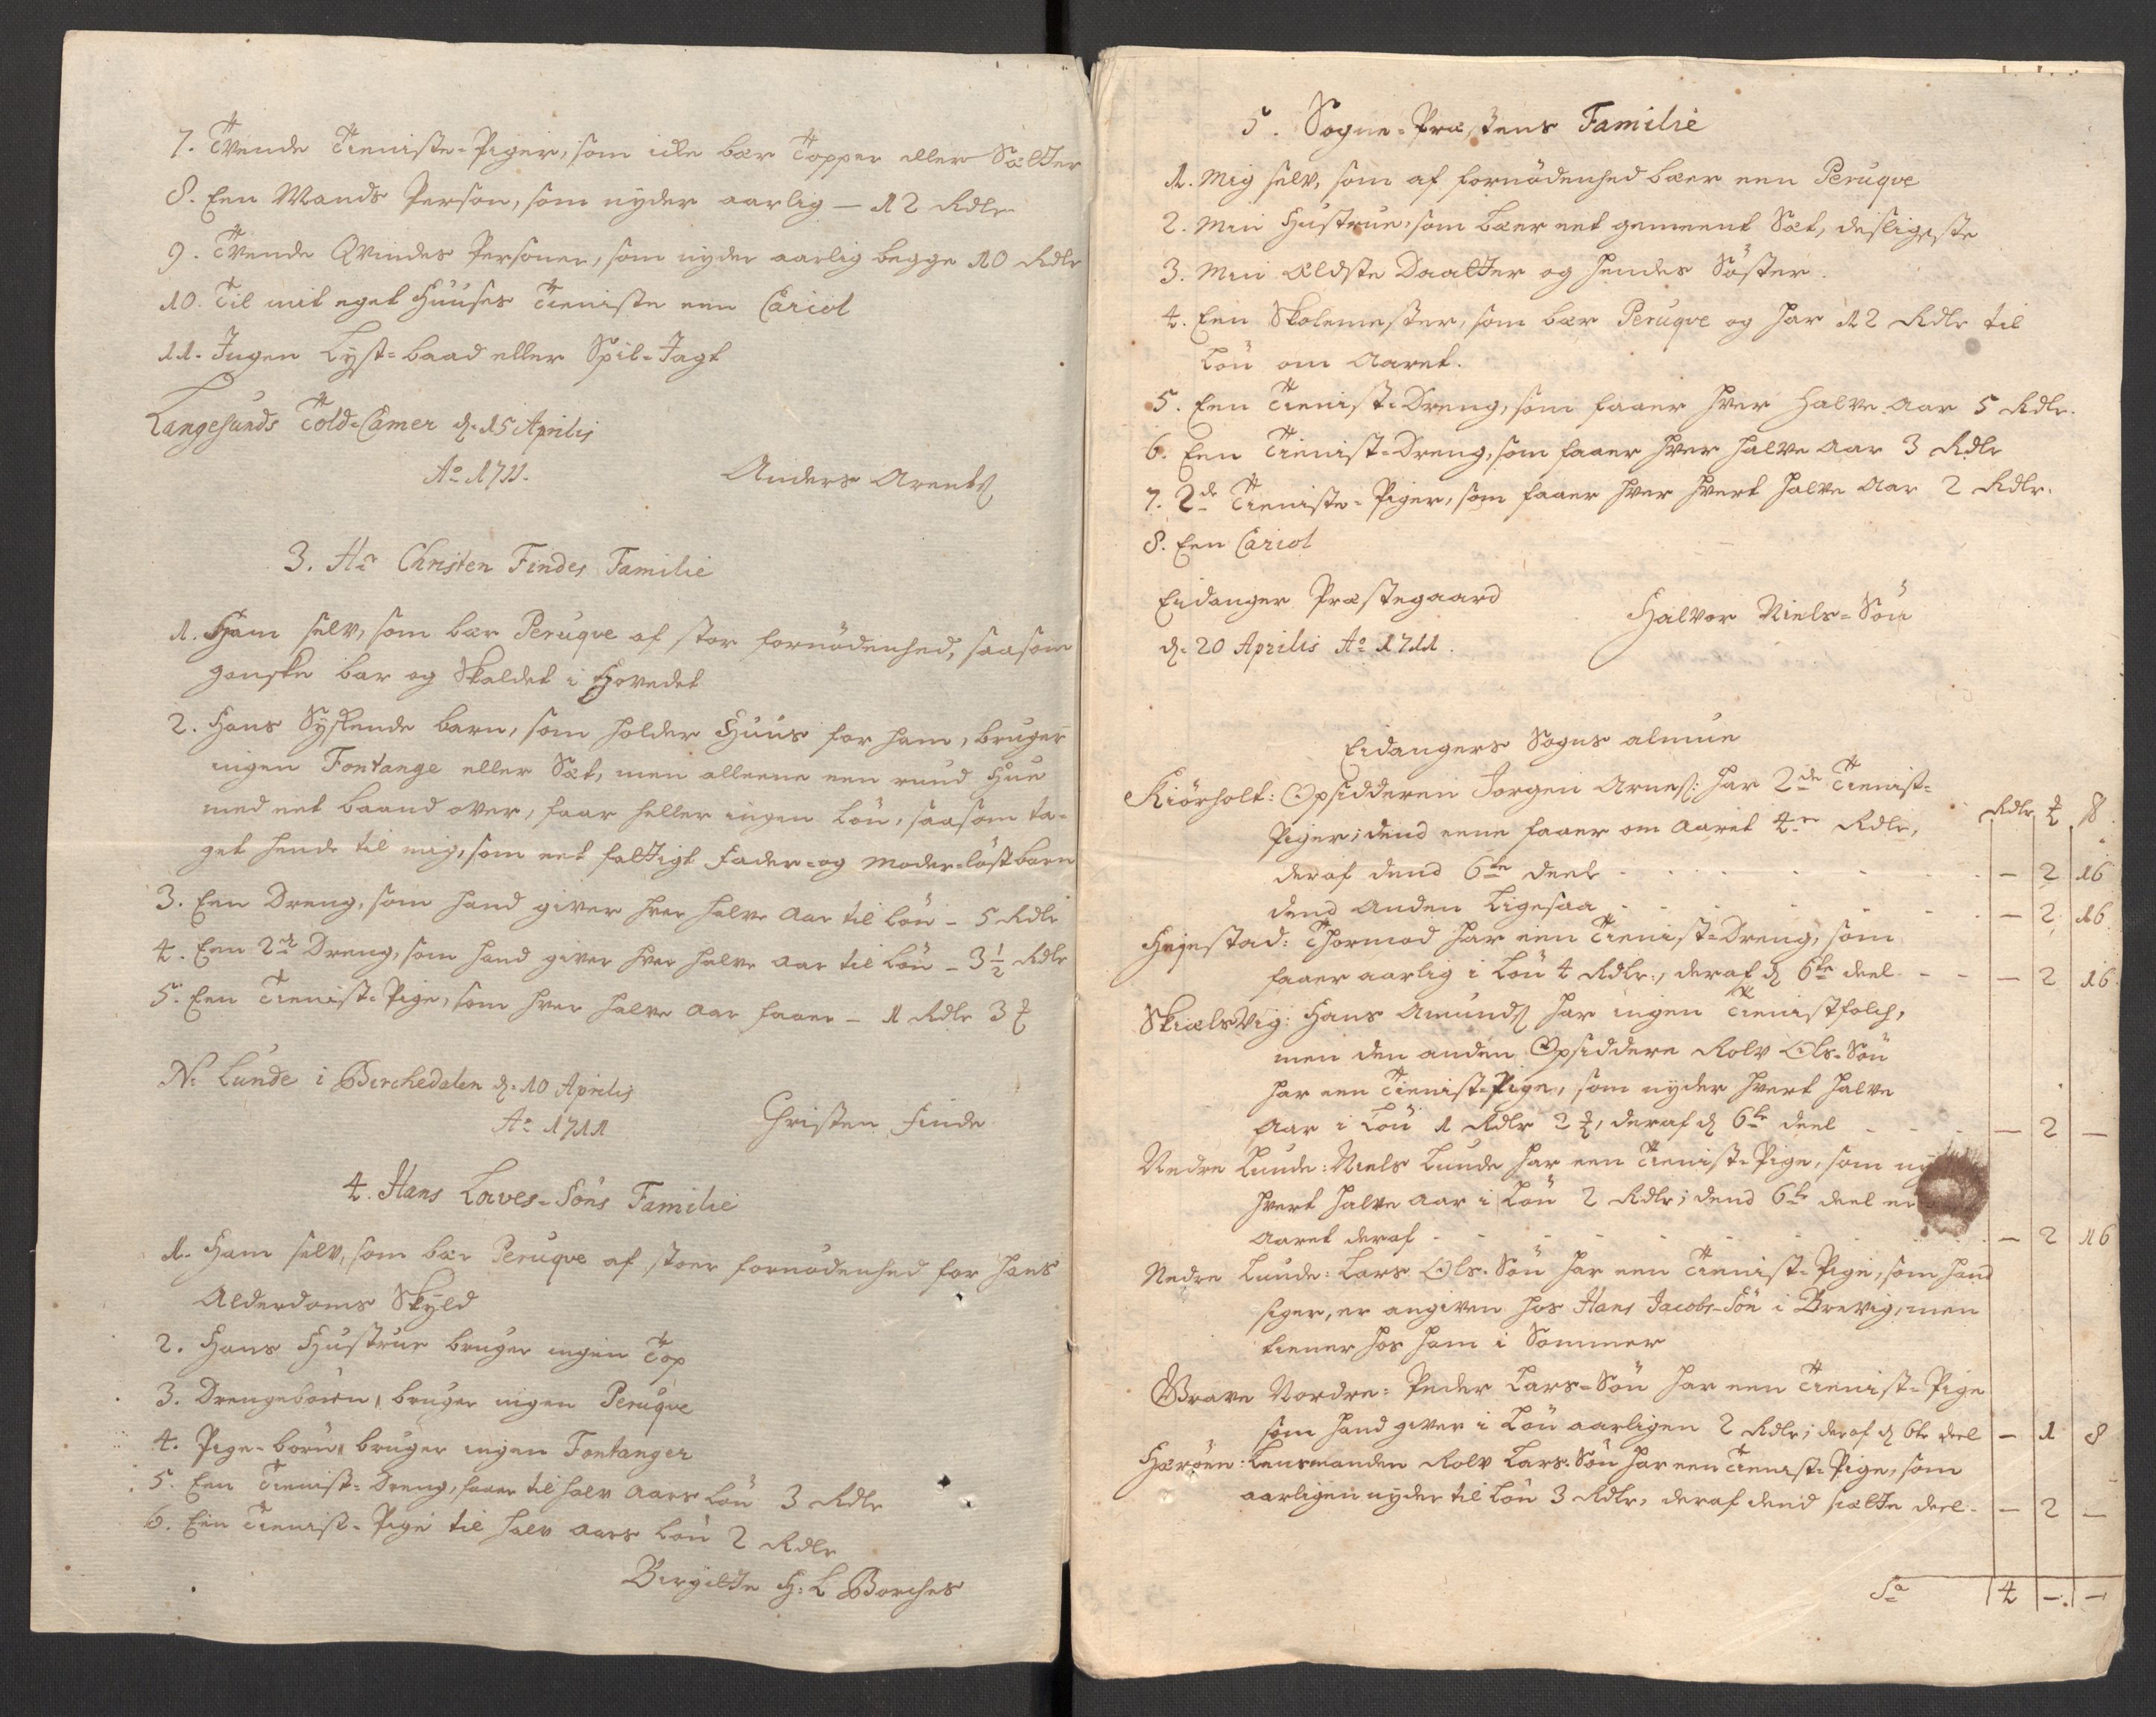 7. Tvende Tieniste-Piger, som icke bær Topper eller Sætter
8. Een Mands Person, som nyder aarlig — 12 Rdlr
9. Tvende Qvindes Personer, som nyder aarlig begge 10 Rdlr
10. Til mit eget Huuses Tieniste een Cariol
11. Ingen Lyst-baad eller Spil-Jagt
Langesunds Told-Camer d. 15 Aprilis
Ao 1711.
Anders Arents
3. Hr Christen Findes Familie
1. Ham selv, som bær Peruqve af stor fornödenhed, saasom
ganske bar og Skaldet i Hovedet
2. Hans Syskende barn, som holder Huus for ham, bruger
ingen Fontange eller Sæt, men alleene een rund Hue
med eet baand over, faar heller ingen Lön, saasom ta-
get hende til mig, som eet fattigt Fader- og Moder-löst barn
3. Een Dreng, som hand giver hver halve Aar til Lön - 5 Rdlr
4. Een 2de Dreng, som hand giver hver halve Aar til Lön - 3½ Rdlr
5. Een Tienist-Pige, som hver halve Aar faaer - 1 Rdlr 3 ʒ
N: Lunde i Birchedalen d. 10 Aprilis
Ao 1711
Christen Finde
4. Hans Laves-Söns Familie
1. Ham selv, som bær Peruqve af stoer fornödenhed for hans
Alderdoms Skyld
2. Hans Hustrue bruger ingen Top
3. Drengebörn, bruger ingen Peruqve
4. Pige-börn, bruger ingen Fontanger
5. Een Tienist-Dreng, faaer til halv Aars Lön 3 Rdlr
6. Een Tienist-Pige til halv Aars Lön 2 Rdlr
Birgitte H: L Borches
5. Sogne-Præstens Familie
1. Mig selv, som af fornödenhed bær een Peruqve
2. Min Hustrue, som bær eet gemeent Sæt, desligeste
3. Min Ældste Daatter og hendes Söster.
4. Een Skolemester, som bær Peruqve og har 12 Rdlr til
Lön om Aaret.
5. Een Tienist-Dreng, som faaer hver Halve Aar 5 Rdlr.
6. Een Tienist-Dreng, som faaer hver halve Aar 3 Rdlr
7. 2de Tieniste-Piger, som faaer hver hvert halve Aar 2 Rdlr.
8. Een Cariol
Eidanger Præstegaard
d. 20 Aprilis Ao 1711.
Halvor Niels-Sön
Eidangers Sogns almue
Kiörholt: Opsidderen Jorgen Arnes: har 2de Tienist-
Rdlr ʒ ß
Piger; dend eene faaer om Aaret 4re Rdlr,
deraf dend 6te deel - — 2 16
dend Anden Ligesaa - — 2 16
Hejestad: Thormod har een Tienist-Dreng, som
faaer aarlig i Lön 4 Rdlr, deraf d 6te deel - — 2 16
Skielsvig: Hans Amunds har ingen Tienistfolch,
men den anden Opsiddere Rolv Ols-Sön
har een Tienist-Pige, som nyder hvert halve
Aar i Lön 1 Rdlr 2 ʒ, deraf d 6te deel - — 2 —
Nedre Lunde: Niels Lunde har een Tienist-Pige, som
hvert halve Aar i Lön 2 Rdlr; dend 6te deel er
Aaret deraf - — 2 16
Nedre Lunde: Lars Ols-Sön har een Tienist-Pige, som hand
siger, er angiven hos Hans Jacobs-Sön i Brevig, men
tiener hos ham i Sommer
Grava Nordre: Peder Lars-Sön har een Tienist-Pige
som hand giver i Lön aarligen 2 Rdlr; deraf d 6te deel — 1 8
Herøen: Lensmanden Rolv Lars-Sön har een Tienist-Pige, som
aarligen nyder til Lön 3 Rdlr, deraf dend siætte deel - — 2 —
Sa 4 — —